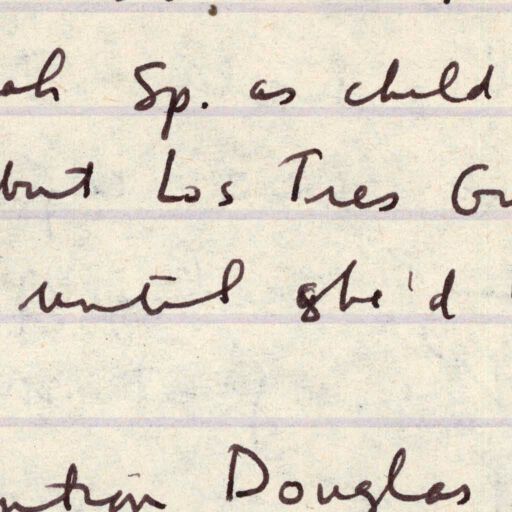 Sp. as child
but Los Tres
until she'd
Douglas